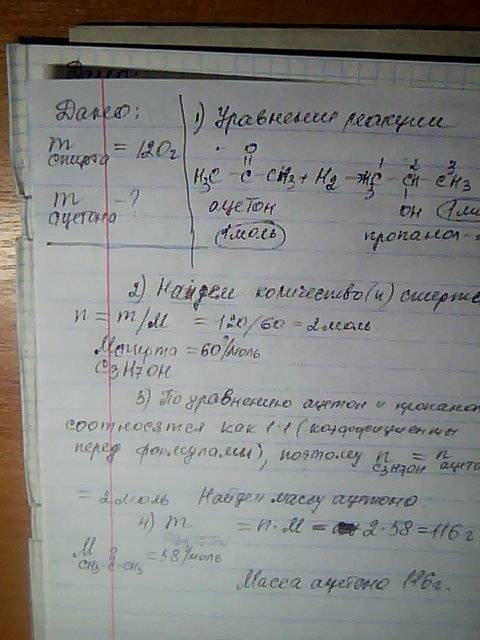 Дано:
m спирта = 120г
m ацетона - ?
1) Уравнение реакции
O
||
H3C - C - CH3 + H2 → H3C - CH - CH3
1 2 3
ацетон OH
1моль пропанол-
2) Найдем количество (n) спирта
n = m/M = 120/60 = 2 моль
M спирта = 60 г/моль
C3H7OH
3) По уравнению ацетон и пропанол
соотносятся как 1:1 (коэффициенты
перед формулами), поэтому n C3H7OH = n ацето
= 2 моль Найдем массу ацетона.
4) m = n·M = 2·58 = 116 г
M CH3-C-CH3 = 58 г/моль
O
Масса ацетона 116г.